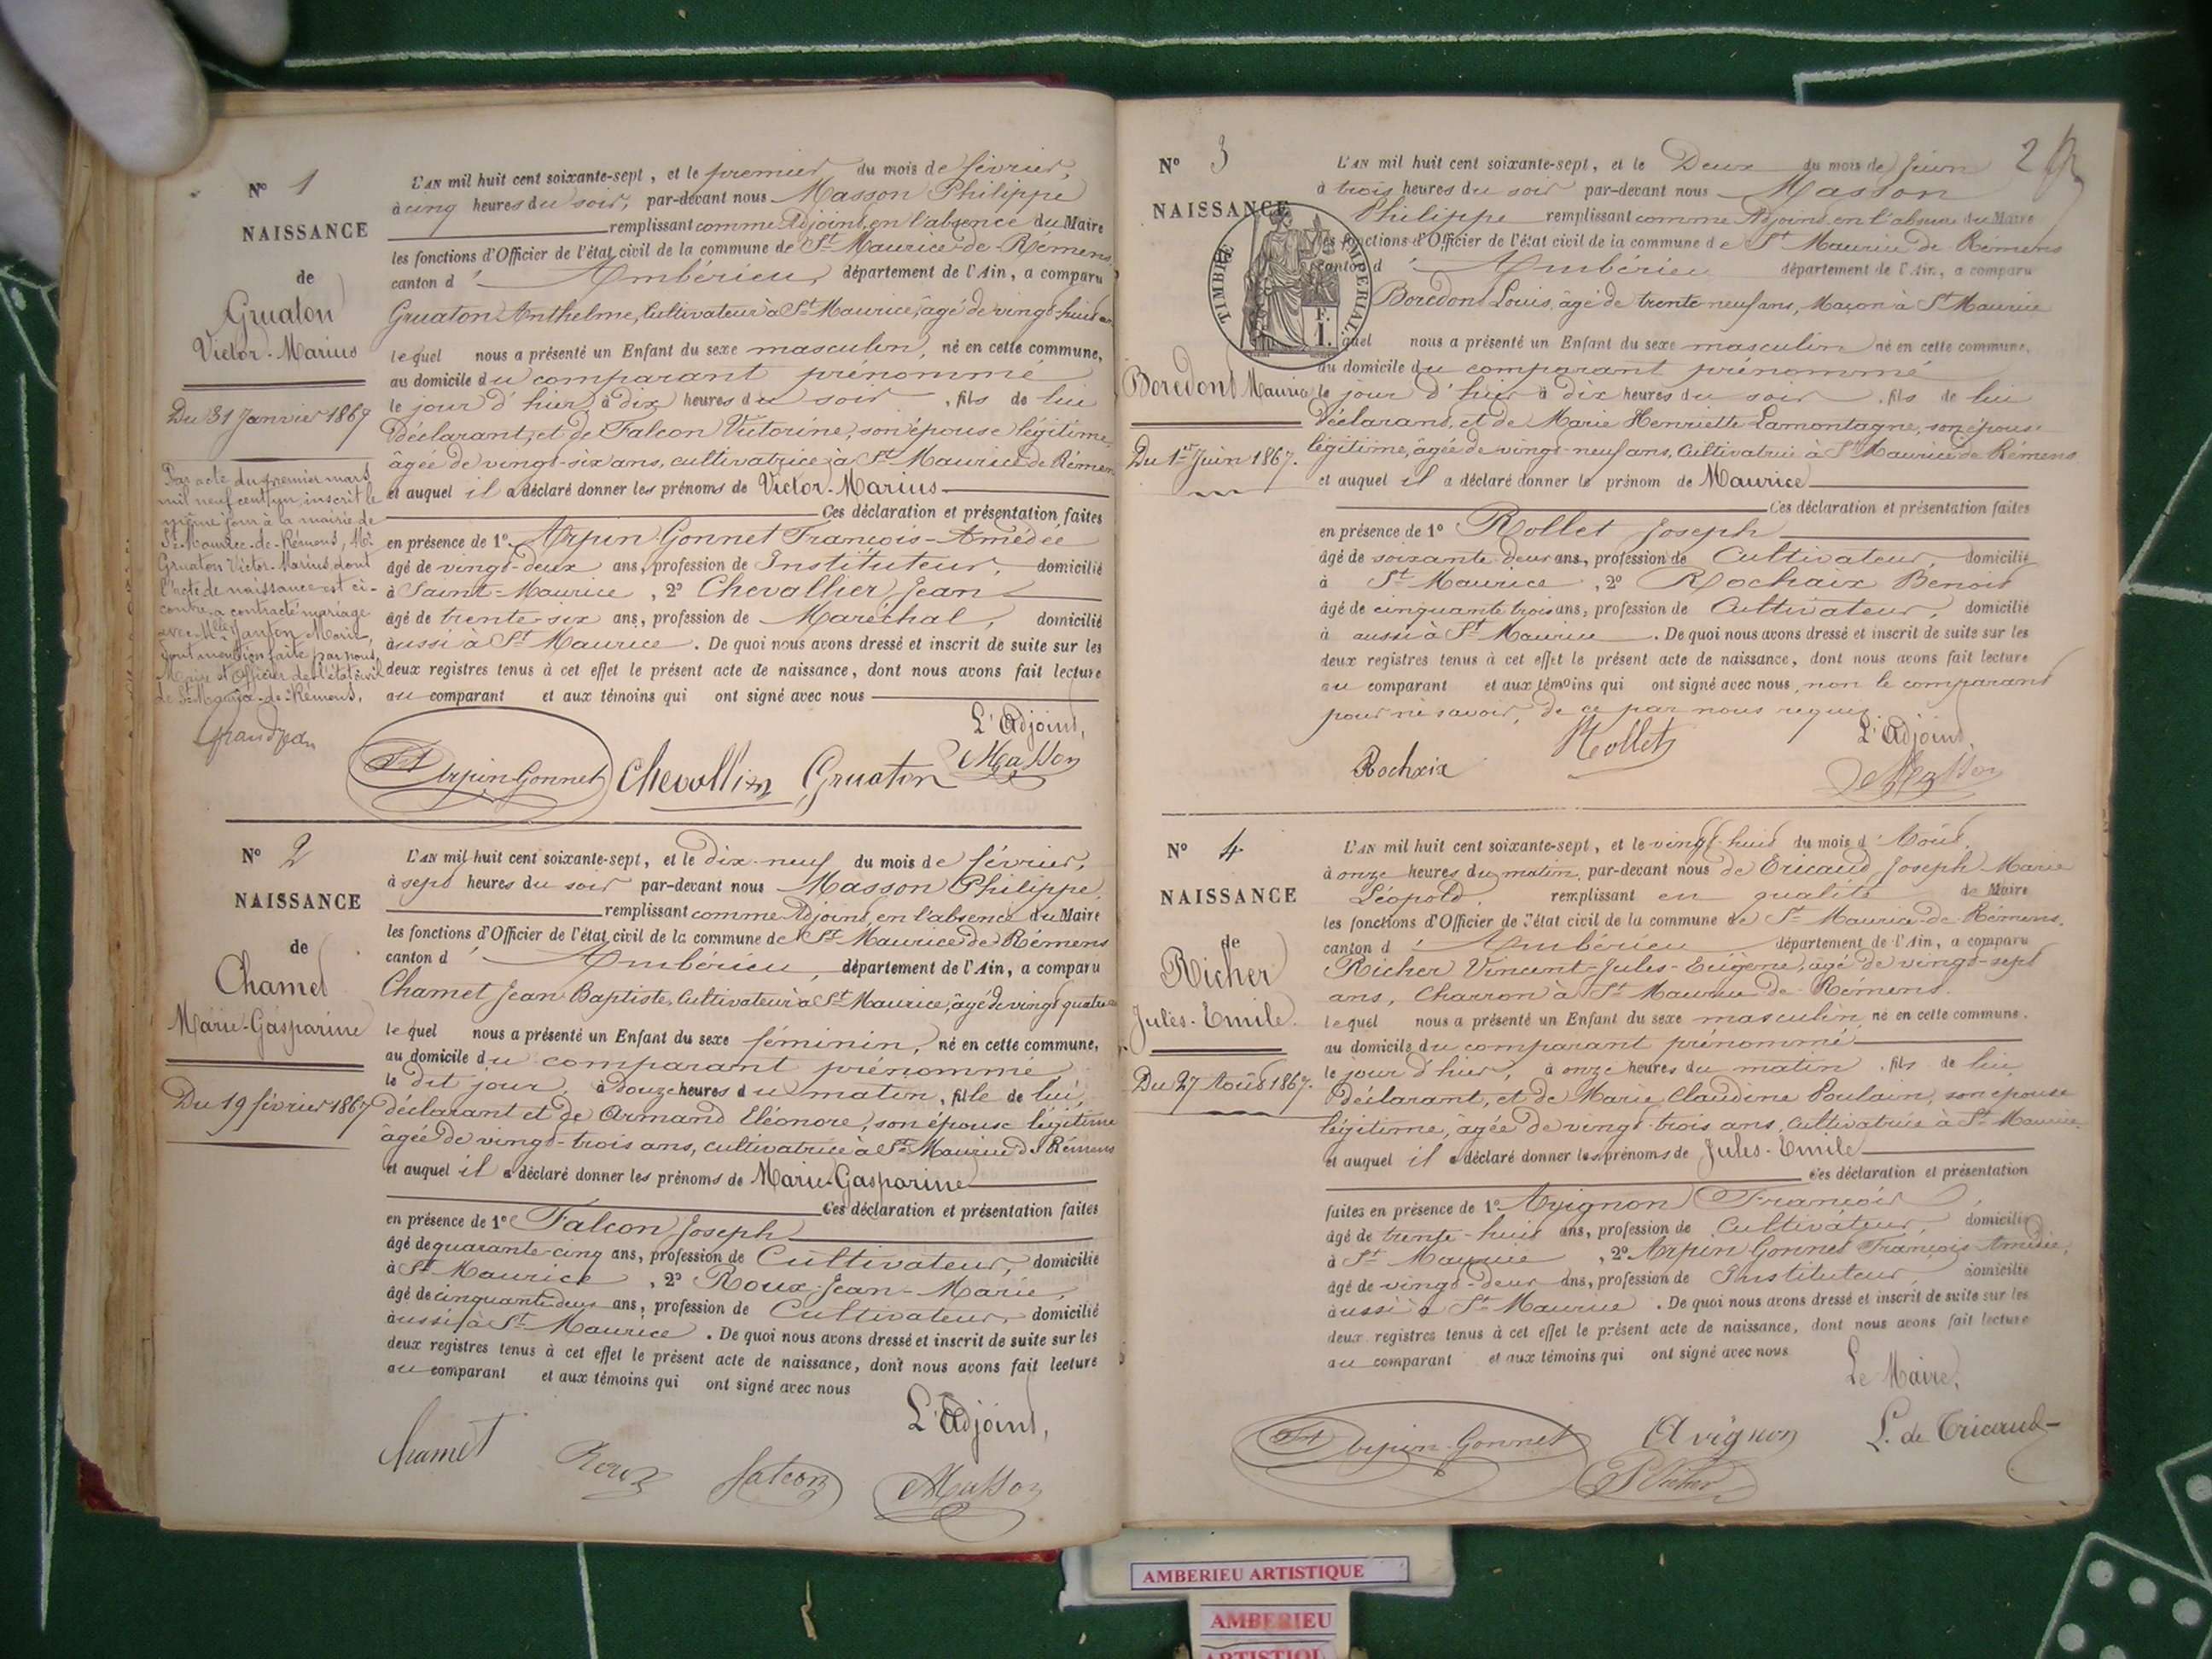 N° 1
NAISSANCE
de
Gruaton
Victor-Marius
Du 31 Janvier 1867
Par acte du premier mars
mil neuf cent un, inscrit le
même jour à la mairie de
St Maurice-de-Rémens, Mr
Gruaton Victor-Marius, dont
l'acte de naissance est ci-
contre, a contracté mariage
avec Mlle Janton Marie,
dont mention faite par nous,
Maire et Officier de l'état civil
de St Maurice-de-Rémens.
L'AN mil huit cent soixante-sept, et le premier du mois de février,
à cinq heures du soir, par-devant nous Masson Philippe
remplissant comme Adjoint, en l'absence du Maire
les fonctions d'Officier de l'état civil de la commune de St Maurice-de-Rémens
canton d'Ambérieu, département de l'Ain, a comparu
Gruaton Anthelme, Cultivateur à St Maurice, âgé de vingt-huit ans
lequel nous a présenté un Enfant du sexe masculin, né en cette commune,
au domicile du comparant prénommé
le jour d'hier, à dix heures du soir, fils de lui
déclarant, et de Falcon Victorine, son épouse légitime,
âgée de vingt-six ans, cultivatrice à St Maurice de Rémens
et auquel il a déclaré donner les prénoms de Victor-Marius
Ces déclaration et présentation faites
en présence de 1° Arpin-Gonnet François-Amédée
âgé de vingt-deux ans, profession de Instituteur, domicilié
à Saint-Maurice, 2° Chevallier Jean
âgé de trente-six ans, profession de Maréchal, domicilié
aussi à St Maurice. De quoi nous avons dressé et inscrit de suite sur les
deux registres tenus à cet effet le présent acte de naissance, dont nous avons fait lecture
au comparant et aux témoins qui ont signé avec nous
L'Adjoint,
Arpin-Gonnet Chevallier Gruaton Masson
N° 2
NAISSANCE
de
Chamet
Marie-Gasparine
Du 19 février 1867
L'AN mil huit cent soixante-sept, et le dix-neuf du mois de février,
à sept heures du soir par-devant nous Masson Philippe,
remplissant comme Adjoint, en l'absence du Maire
les fonctions d'Officier de l'état civil de la commune de St Maurice de Rémens
canton d'Ambérieu, département de l'Ain, a comparu
Chamet Jean Baptiste, Cultivateur à St Maurice, âgé de vingt quatre
lequel nous a présenté un Enfant du sexe féminin, né en cette commune,
au domicile du comparant prénommé
le dit jour, à douze heures du matin, fille de lui,
déclarant et de Armand Eléonore, son épouse légitime
âgée de vingt-trois ans, cultivatrice à St Maurice de Rémens
et auquel il a déclaré donner les prénoms de Marie-Gasparine
Ces déclaration et présentation faites
en présence de 1° Falcon Joseph
âgé de quarante-cinq ans, profession de Cultivateur, domicilié
à St Maurice, 2° Roux Jean-Marie,
âgé de cinquante-deux ans, profession de Cultivateur, domicilié
aussi à St Maurice. De quoi nous avons dressé et inscrit de suite sur les
deux registres tenus à cet effet le présent acte de naissance, dont nous avons fait lecture
au comparant et aux témoins qui ont signé avec nous
L'Adjoint,
Chamet Roux Falcon Masson
N° 3
NAISSANCE
TIMBRE IMPÉRIAL
1 F.
Boredont Maurice
Du 1er Juin 1867.
L'AN mil huit cent soixante-sept, et le Deux du mois de Juin
à trois heures du soir par-devant nous Masson
Philippe remplissant comme Adjoint, en l'absence du Maire
les fonctions d'Officier de l'état civil de la commune de St Maurice de Rémens
canton d'Ambérieu département de l'Ain, a comparu
Boredont Louis, âgé de trente neuf ans, Maçon à St Maurice
lequel nous a présenté un Enfant du sexe masculin né en cette commune,
au domicile du comparant prénommé
le jour d'hier à dix heures du soir, fils de lui
Déclarant, et de Marie Henriette Lamontagne, son épouse
légitime, âgée de vingt-neuf ans, Cultivatrice à St Maurice de Rémens
et auquel il a déclaré donner le prénom de Maurice
Ces déclaration et présentation faites
en présence de 1° Rollet Joseph
âgé de soixante deux ans, profession de Cultivateur, domicilié
à St Maurice, 2° Rochaix Benoit
âgé de cinquante trois ans, profession de Cultivateur, domicilié
à aussi à St Maurice. De quoi nous avons dressé et inscrit de suite sur les
deux registres tenus à cet effet le présent acte de naissance, dont nous avons fait lecture
au comparant et aux témoins qui ont signé avec nous, non le comparant
pour ne savoir, de ce par nous requis.
L'Adjoint,
Rochaix Rollet Masson
N° 4
NAISSANCE
de
Richer
Jules-Emile.
Du 27 Août 1867.
L'AN mil huit cent soixante-sept, et le vingt huit du mois d'Août,
à onze heures du matin, par-devant nous de Tricaud Joseph Marie
Léopold, remplissant en qualité de Maire
les fonctions d'Officier de l'état civil de la commune de St Maurice-de-Rémens,
canton d'Ambérieu département de l'Ain, a comparu
Richer Vincent-Jules-Eugène, âgé de vingt-sept
ans, Charron à St Maurice-de-Rémens.
lequel nous a présenté un Enfant du sexe masculin, né en cette commune,
au domicile du comparant prénommé
le jour d'hier, à onze heures du matin, fils de lui
Déclarant, et de Marie Claudine Poulain, son épouse
légitime, âgée de vingt-trois ans, cultivatrice à St Maurice.
et auquel il a déclaré donner les prénoms de Jules-Emile
Ces déclaration et présentation
faites en présence de 1° Avignon François
âgé de trente-huit ans, profession de Cultivateur, domicilié
à St Maurice, 2° Arpin Gonnet François Amédée,
âgé de vingt-deux ans, profession de Instituteur, domicilié
aussi à St Maurice. De quoi nous avons dressé et inscrit de suite sur les
deux registres tenus à cet effet le présent acte de naissance, dont nous avons fait lecture
au comparant et aux témoins qui ont signé avec nous
Le Maire,
Arpin-Gonnet Avignon L. de Tricaud
Richer
AMBERIEU ARTISTIQUE
AMBERIEU
ARTISTIQUE